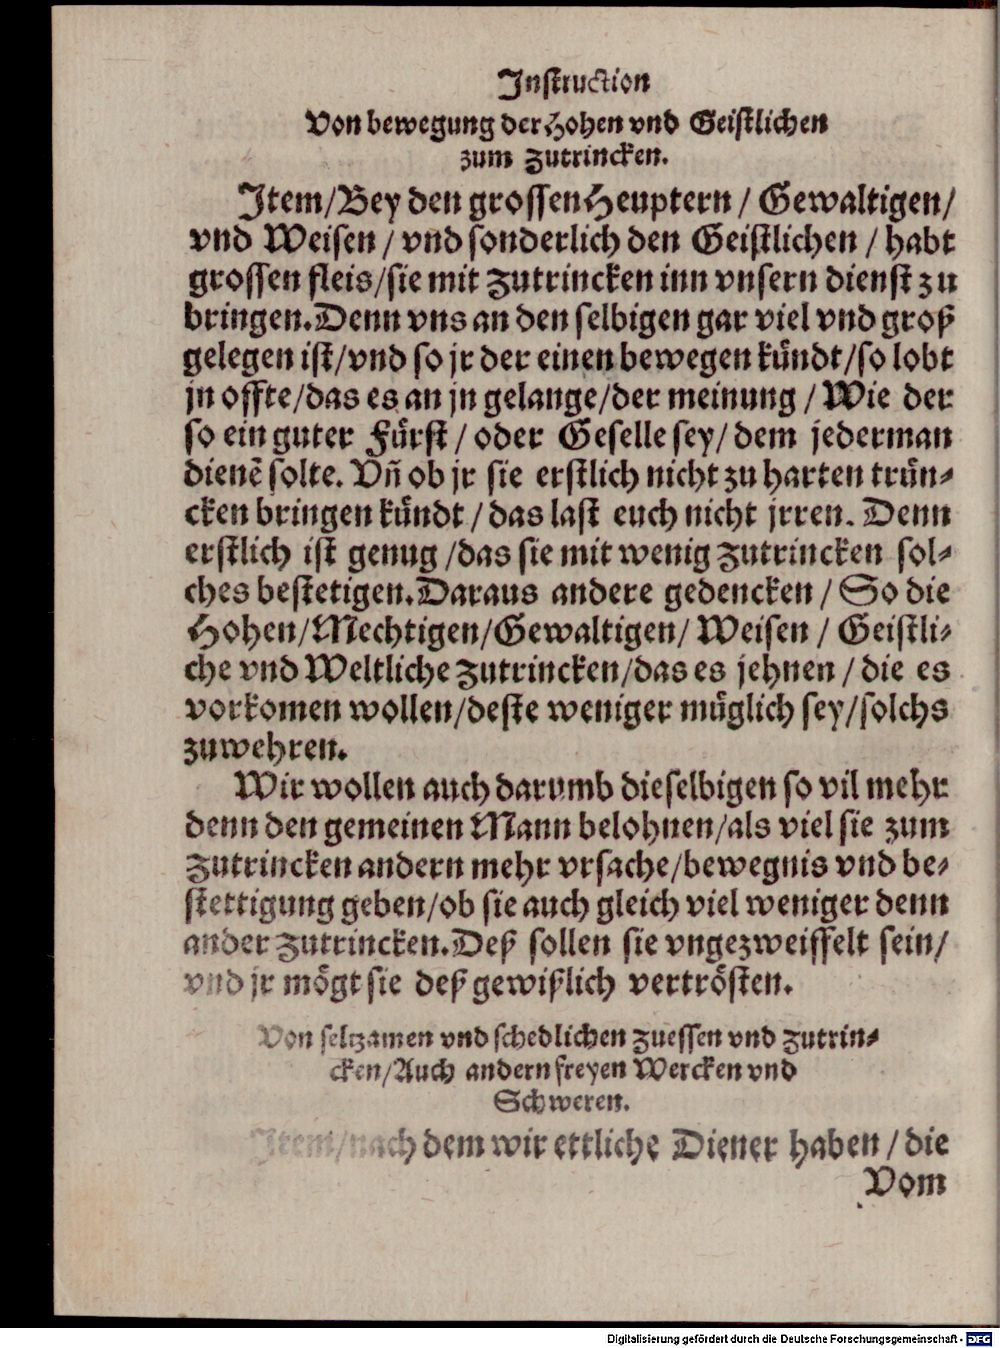 Instruction
Von bewegung der Hohen vnd Geistlichen
zum Zutrincken.
Item/Bey den grossen Heuptern / Gewaltigen/
vnd Weisen / vnd sonderlich den Geistlichen / habt
grossen fleis/sie mit Zutrincken inn vnsern dienst zu
bringen. Denn vns an den selbigen gar viel vnd groß
gelegen ist/vnd so jr der einen bewegen kündt/so lobt
jn offte/das es an jn gelange/der meinung / Wie der
so ein guter Fürst / oder Geselle sey/ dem jederman
dienẽ solte. Vñ ob jr sie erstlich nicht zu harten trün-
cken bringen kündt / das last euch nicht jrren. Denn
erstlich ist genug /das sie mit wenig Zutrincken sol-
ches bestetigen. Daraus andere gedencken / So die
Hohen/Mechtigen/Gewaltigen/ Weisen / Geistli-
che vnd Weltliche Zutrincken/das es jehnen / die es
vorkomen wollen/deste weniger müglich sey/solchs
zuwehren.
Wir wollen auch darumb dieselbigen so vil mehr
denn den gemeinen Mann belohnen/als viel sie zum
Zutrincken andern mehr vrsache/bewegnis vnd be-
stettigung geben/ob sie auch gleich viel weniger denn
ander Zutrincken. Deß sollen sie vngezweiffelt sein/
vnd jr mögt sie deß gewißlich vertrösten.
Von seltzamen vnd schedlichen Zuessen vnd Zutrin-
cken/Auch andern freyen Wercken vnd
Schweren.
Item/nach dem wir ettliche Diener haben / die
Vom
Digitalisierung gefördert durch die Deutsche Forschungsgemeinschaft - DFG